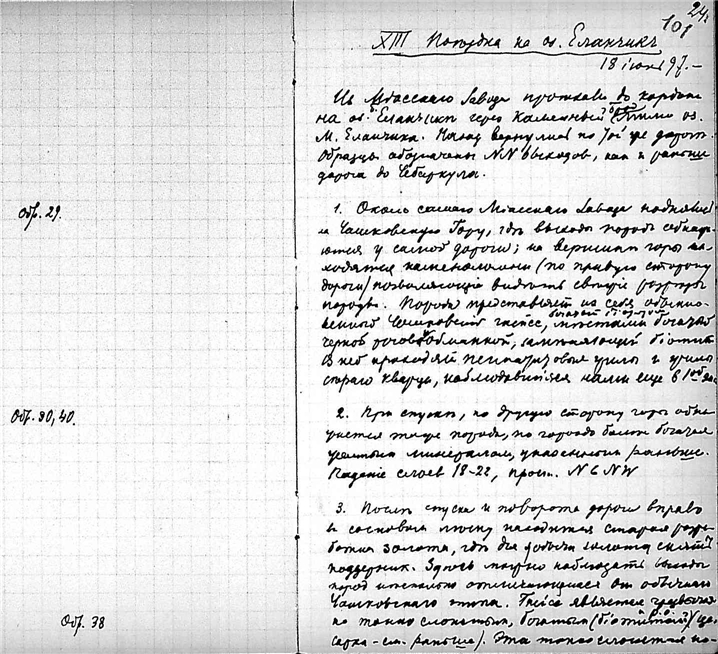 24.
101
XIII Поѣздка на оз. Еланчикъ
18 іюня 97.
Изъ Міасскаго Завода проѣхали до кордона
на оз. Еланчикъ черезъ Каменный оз.
М. Еланчика. Назад вернулись по той же дорогѣ.
Образцы обозначены NN выходов, как и раньше
дорога до Чебаркуля.
Обр. 29.
1. Около самаго Міасскаго Завода поднялись
на Чашковскую Гору, гдѣ выходы породъ обнару-
ются у самой дороги; на вершинѣ горы на-
ходятся каменоломни (по правую сторону
дороги) позволяющія видѣть свѣжіе разрѣзы
породы. Порода представляет из себя обыкно-
венный Чашковскій гнейс, мѣстами богатый
черной роговой обманкой, замѣняющей біотит.
В неб проходят пегматитовые жилы и жилы
сѣраго кварца, наблюдавшіяся нами еще в
Обр. 30, 40.
2. При спускѣ, по другую сторону горы обна-
жается та же порода, но гораздо болѣе богатая
минералами, указанными раньше.
Паденіе слоев 18-22, прост. N 6 NW
3. Послѣ спуска и поворота дороги вправо
в сосновом лѣску находится старая разра-
ботка золота, гдѣ для добычи золота снятъ
поддерник. Здѣсь можно наблюдать выходы
пород нѣсколько отличающіеся от обычнаго
Чашковскаго типа. Гнейс является
но тонко слоистым, богатым (біотитом)
см. раньше). Эта тонко слоистая по-
Обр. 38